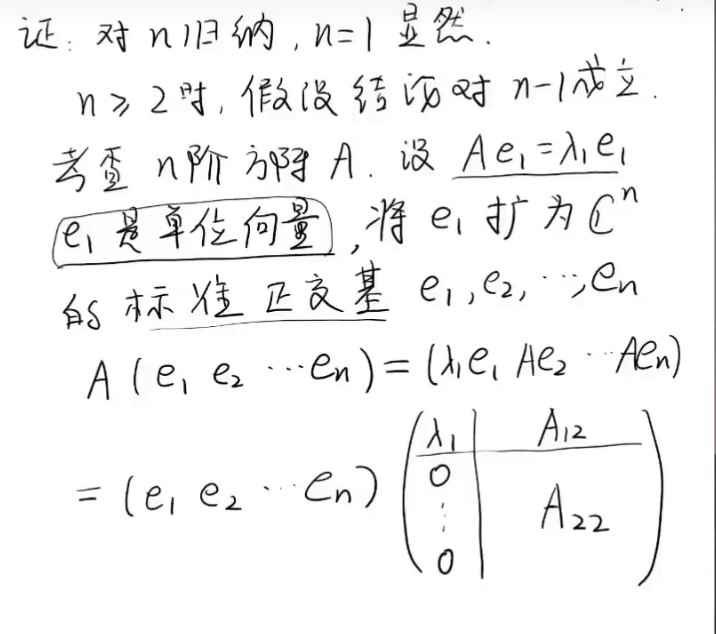 证: 对 n 归纳, n=1 显然.
n ≥ 2时, 假设结论对 n-1成立.
考查 n阶方阵 A. 设 Ae₁=λ₁e₁
e₁是单位向量, 将 e₁ 扩为 ℂⁿ
的标准正交基 e₁, e₂, ⋯, eₙ
A(e₁ e₂ ⋯eₙ) = (λ₁e₁ Ae₂ ⋯Aeₙ)
= (e₁ e₂ ⋯ eₙ) (λ₁ A₁₂
0
⋮ A₂₂
0)